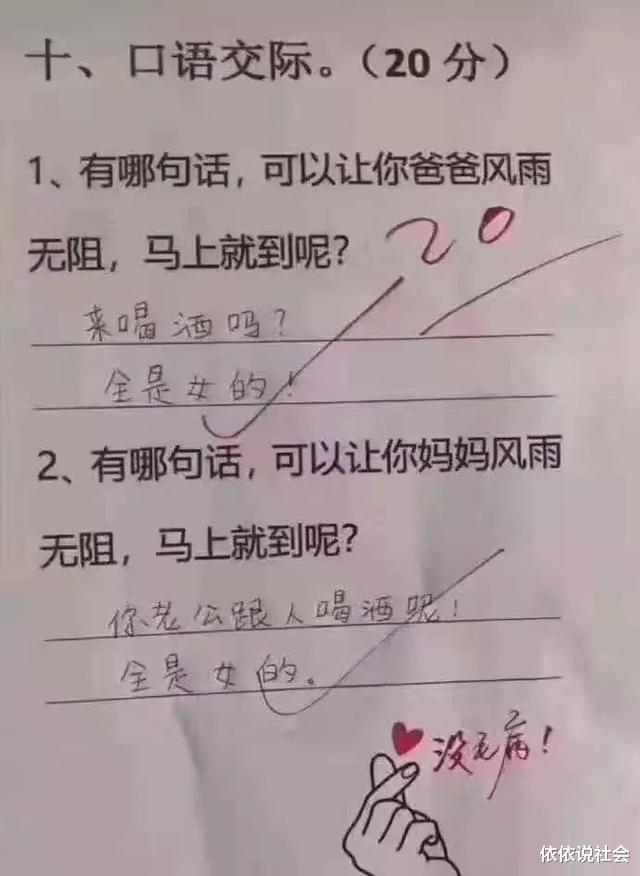 十、口语交际。（20分）
1、有哪句话，可以让你爸爸风雨
无阻，马上就到呢？
20
来喝酒吗？
全是女的！
2、有哪句话，可以让你妈妈风雨
无阻，马上就到呢？
你老公跟人喝酒呢！
全是女的。
没毛病！
依依说社会